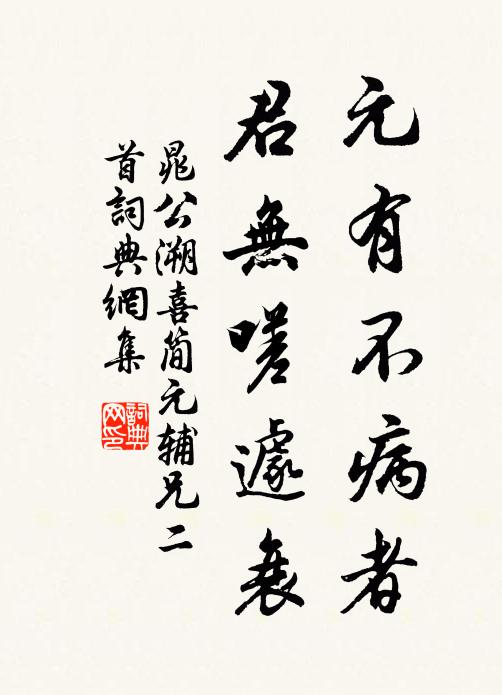 元有不病者
君無嗟遽衰
晁公溯喜简元辅兄二
首詞典網集
詞典
网印